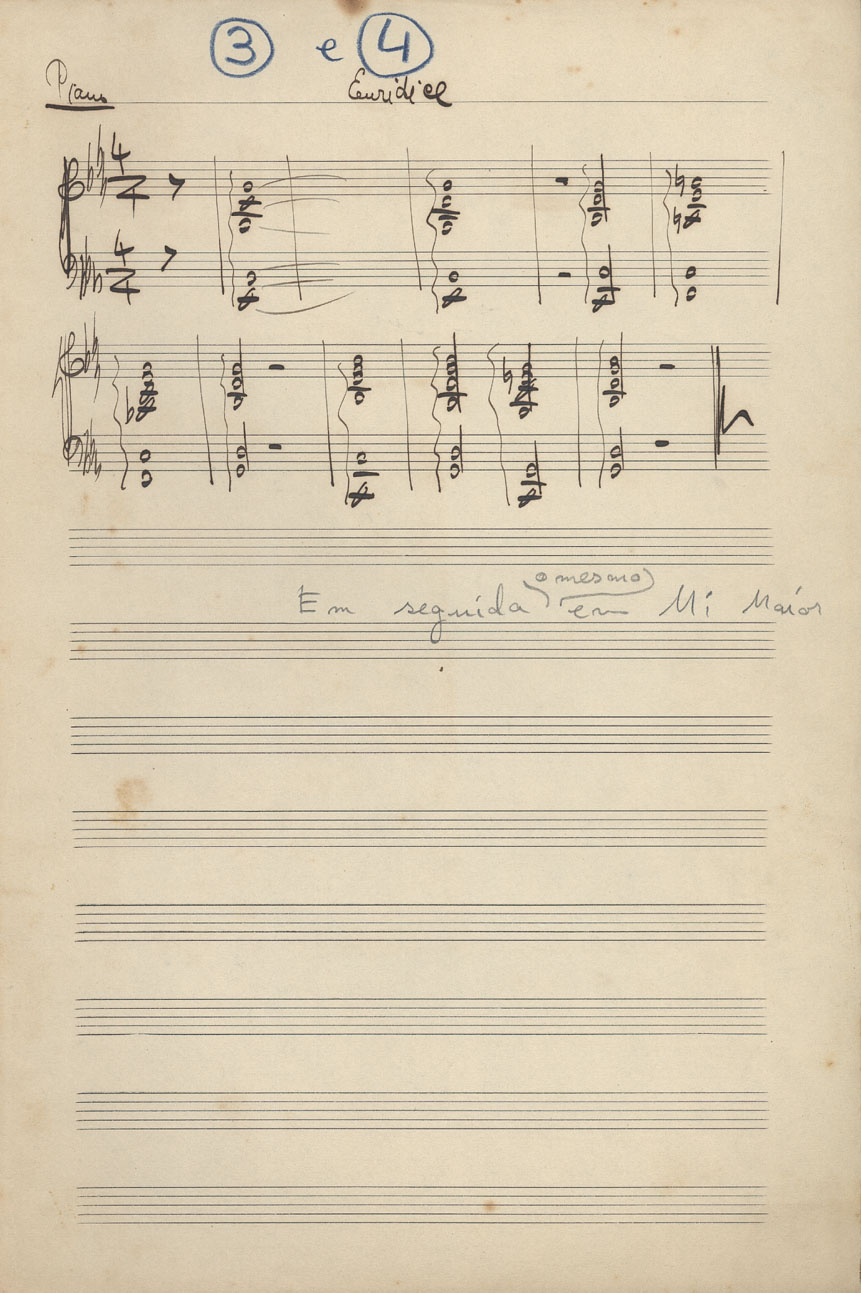 3 e 4
Piano
Euridice
4
4
4
4
o mesmo
Em seguida em Mi Maior